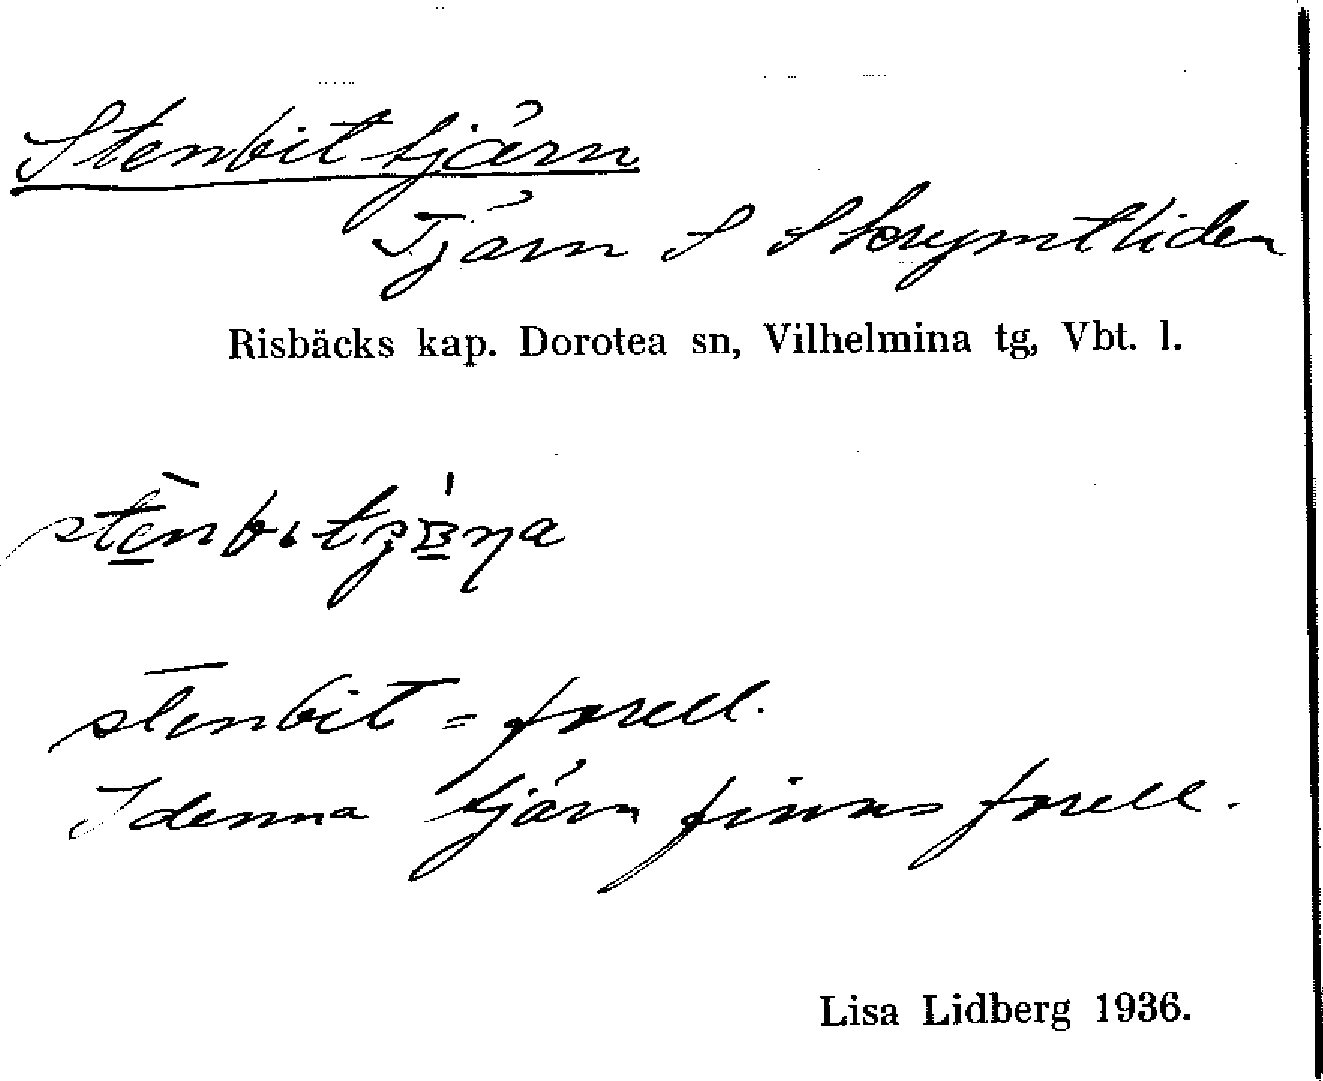 Stenbittjärn
Tjärn S Skrymtliden
Risbäcks kap. Dorotea sn, Vilhelmina tg, Vbt. l.
stenbit = forell.
I denna tjärn finns forell.
Lisa Lidberg 1936.